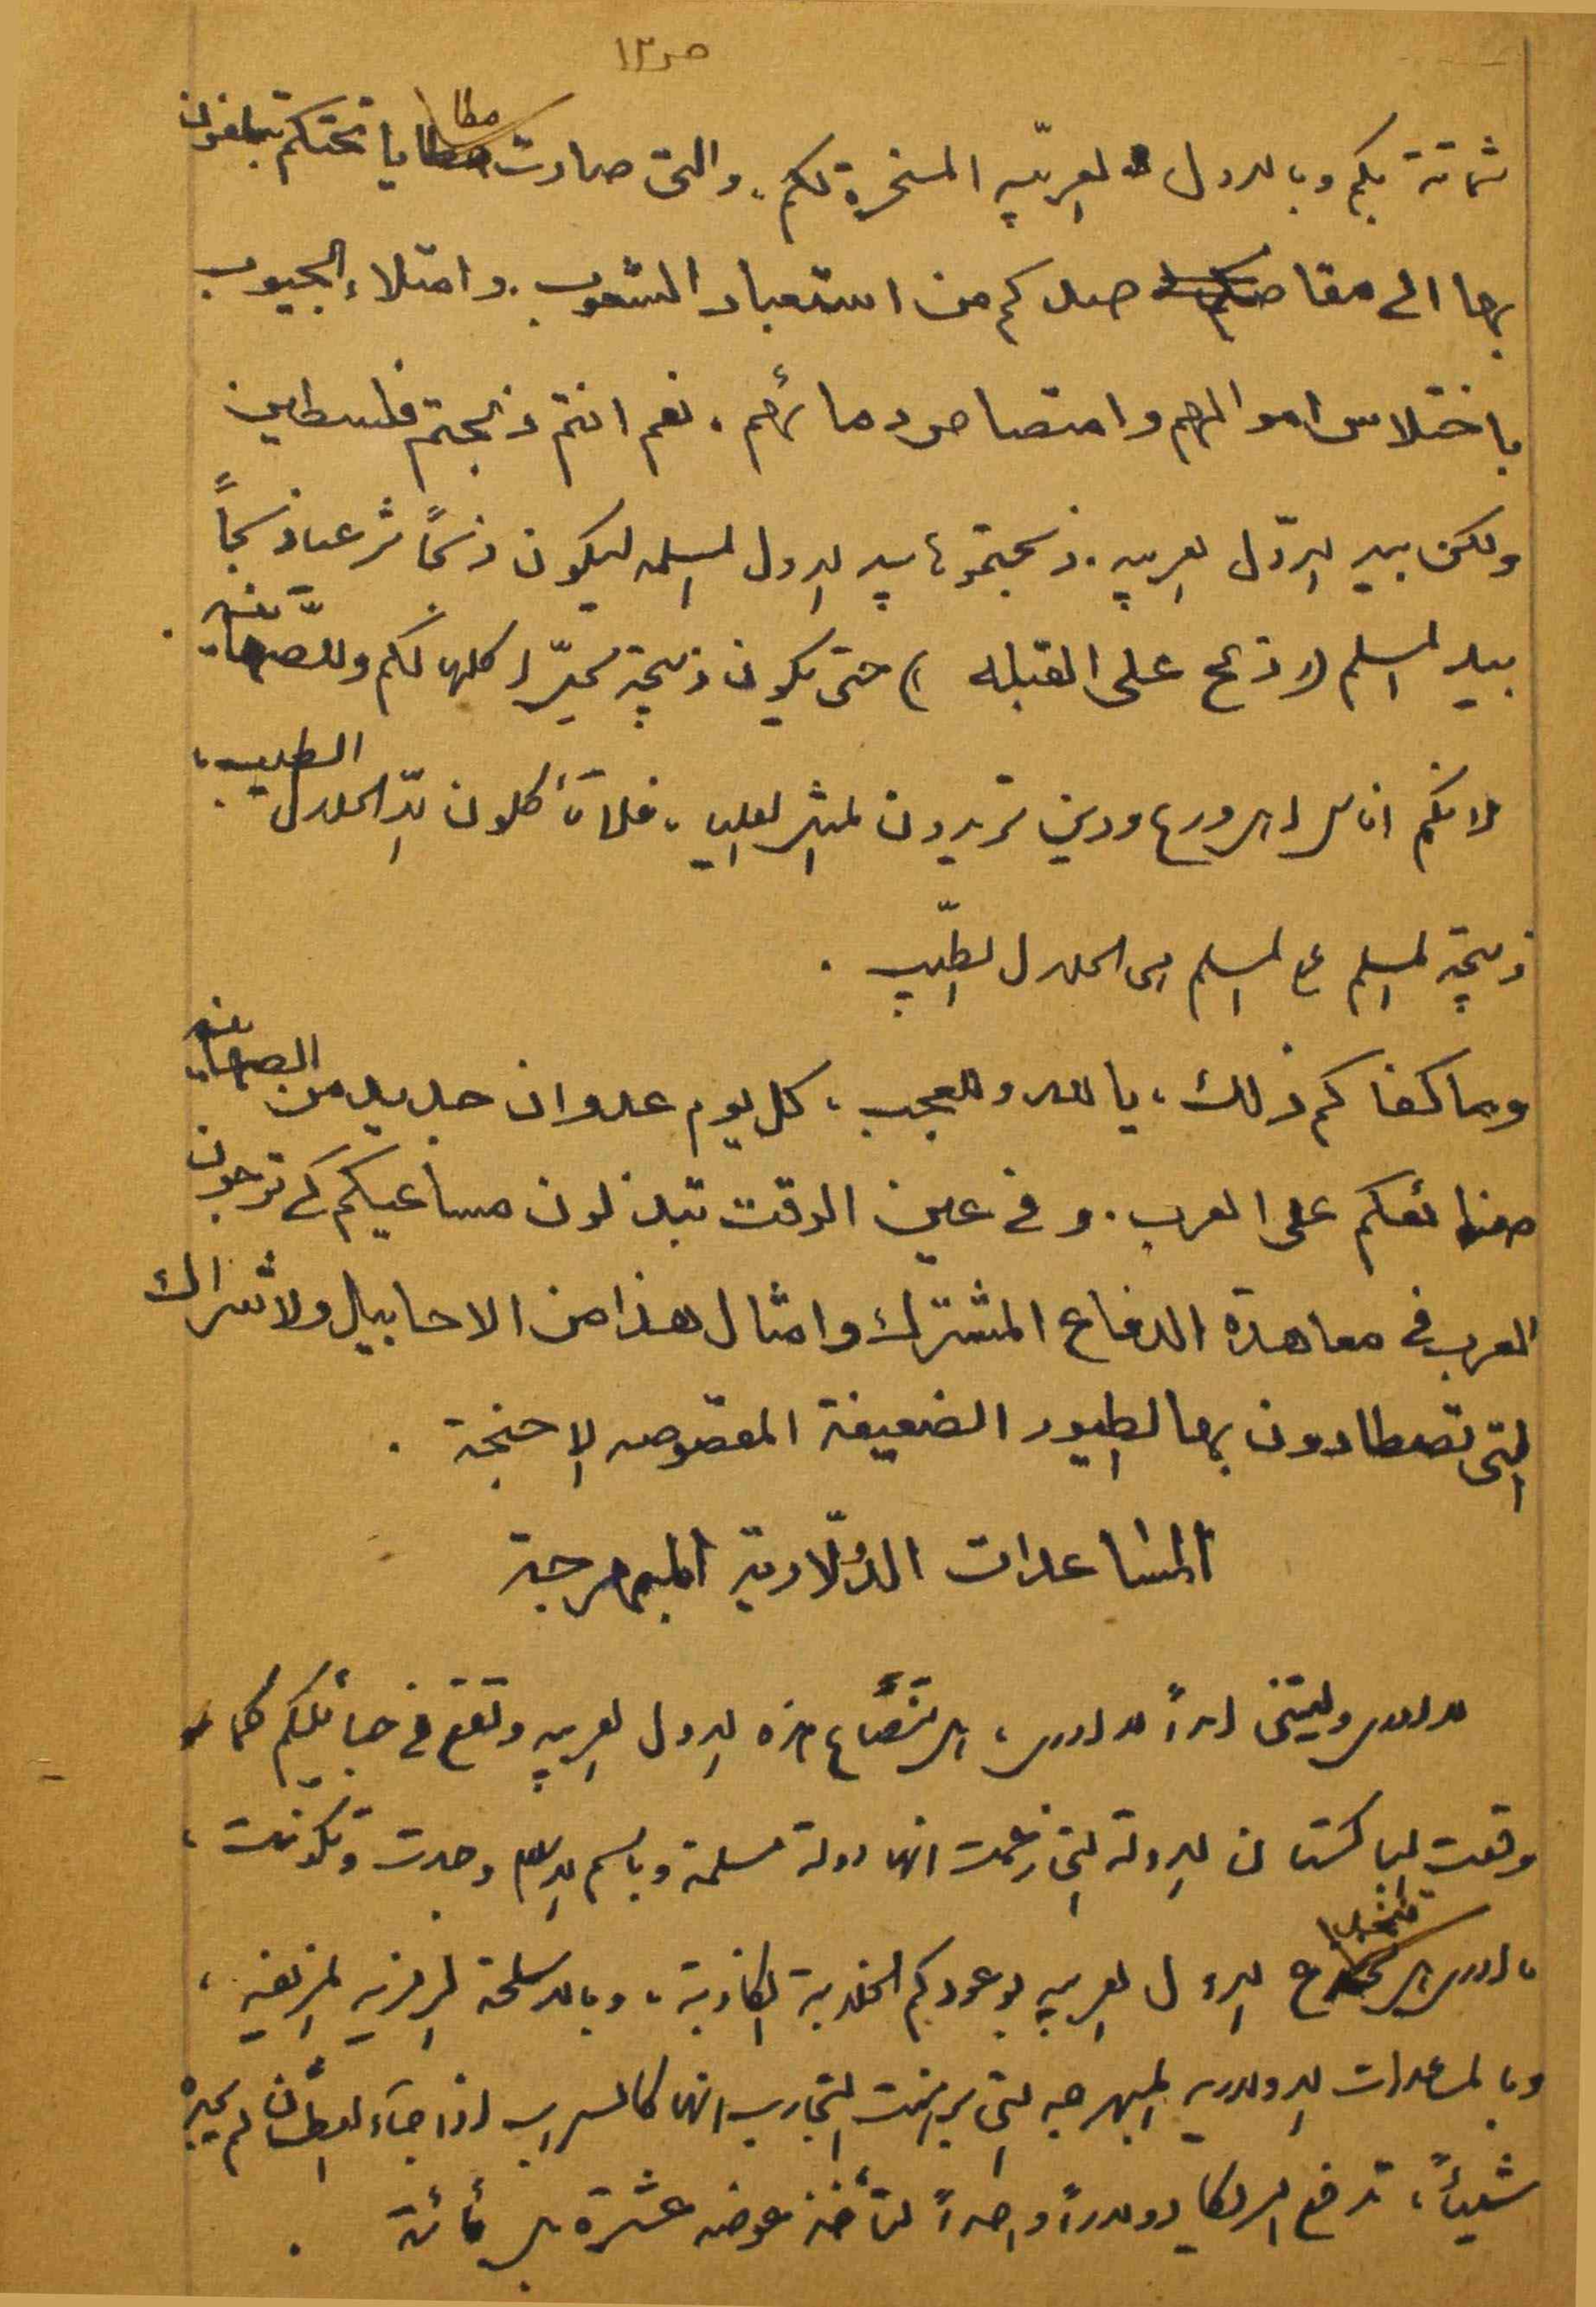 ص١٣
شماتة بكم وبالدول العربيه المسخرة لكم، والتى صارت مطايا تحتكم تبلغون
بها الى مقاصدكم من استعباد الشعوب. وامتلاء الجيوب
باختلاس اموالهم وامتصاص دمائهم، نعم انتم ذبحتم فلسطين
ولكن بيد الدّول العربيه. ذبحتموها بيد الدول المسلمه ليكون ذبحاً شرعياً ذبحاً
بيد المسلم (( وذبح على القبله )) حتى يكون ذبيحة يحلّ اكلها لكم وللصّهاينه.
لانكم اناس اهل ورع ودين تريدون المثل العليا، فلا تأكلون الّا الحلال الطيب،
ذبيحة المسلم المسلم هى الحلال الطيّب.
وما كفاكم ذلك، يا لله وللعجب، كل يوم عدوان جديد من الصهاينه
صنائعكم على العرب. وفى عين الوقت تبذلون مساعيكم كى توجون
العرب فى معاهدة الدفاع المشترك وامثال هذا من الاحابيل والاشراك
التى تصطادون بها الطيور الضعيفة المقصوصه الاجنحة.
المساعدات الدولّارية المبهرجة
لا لا وليتنى ابداً لا، هذه الدول العربيه وتقع فى حبائلكم كما
وقعت الباكستان الدولة التى زعمت انها دولة مسلمة وباسم الاسلام وجدت وتكونت،
لا تنخدع الدول العربيه بوعودكم الخلابة الكاذبة، وبالاسلحة الرمزيه المزيفه،
وبالمساعدات الدولاريه المبهرجه التى برهنت التجارب انها كالسراب اذا جاءه الظمآن لم يجده
شيئاً، تدفع امريكا دولاراً واحداً لتأخذ عوضه عشرة بل مائة.